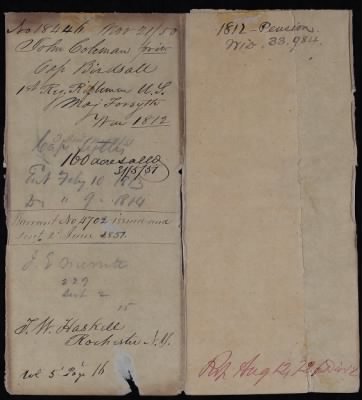 No 18446 Nov 21/50
John Coleman priv
Cap Birdsall
1st Reg Riflemen U.S.
Maj Forsyth
War 1812
160 acres alld
31/5/51
Ent Feby 10 1813
Dis " 9 - 1814
Warrant No 4702 issued and
sent 2d June 1851.
J. E. Merritt
229
2
15
T. W. Haskell
Rochester N.Y.
Vol 5 Page 16
1812 - Pension.
Wid. 33,984
Aug 12,